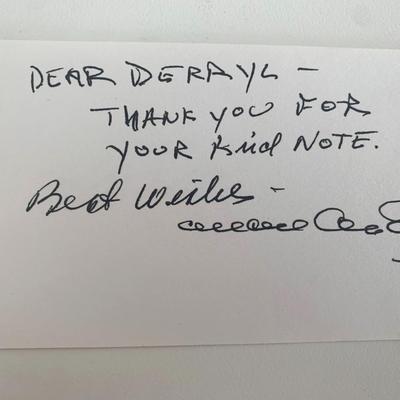 DEAR DERAYL –
THANK YOU FOR
YOUR Kind NOTE.
Best Wishes –